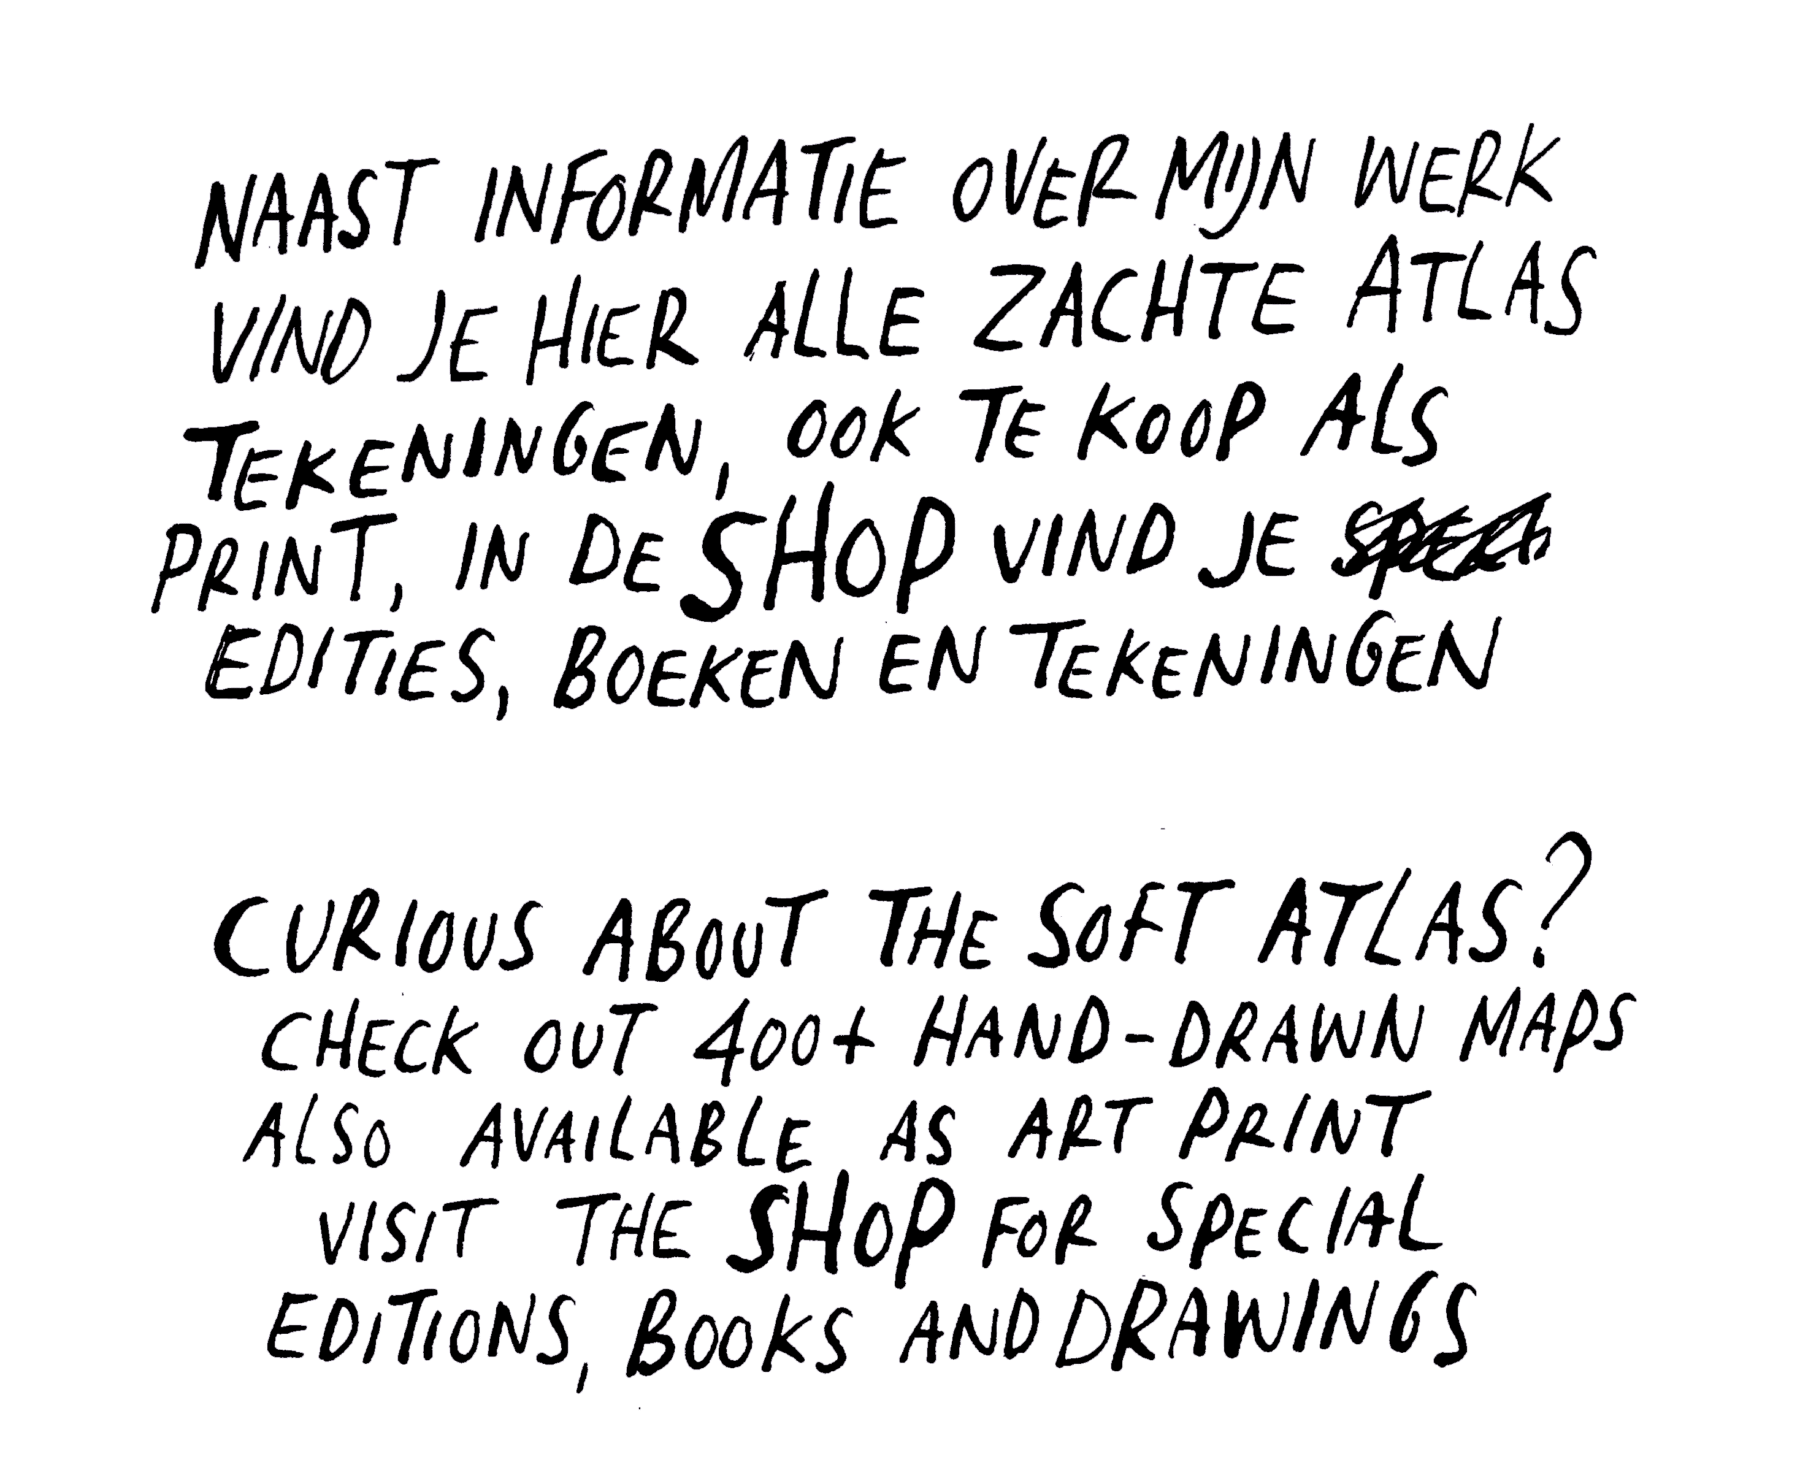 NAAST INFORMATIE OVER MIJN WERK
VIND JE HIER ALLE ZACHTE ATLAS
TEKENINGEN, OOK TE KOOP ALS
PRINT, IN DE SHOP VIND JE
EDITIES, BOEKEN EN TEKENINGEN
CURIOUS ABOUT THE SOFT ATLAS?
CHECK OUT 400+ HAND-DRAWN MAPS
ALSO AVAILABLE AS ART PRINT
VISIT THE SHOP FOR SPECIAL
EDITIONS, BOOKS AND DRAWINGS